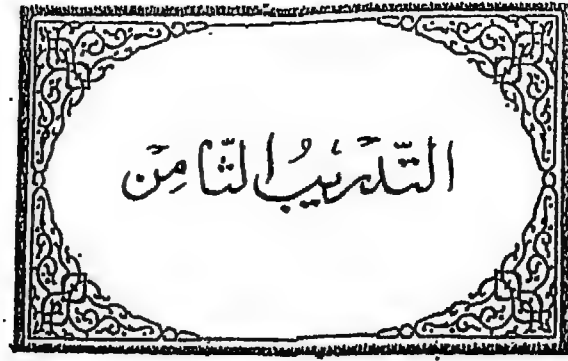 التَّدْرِيبُ الثَّامِنْ